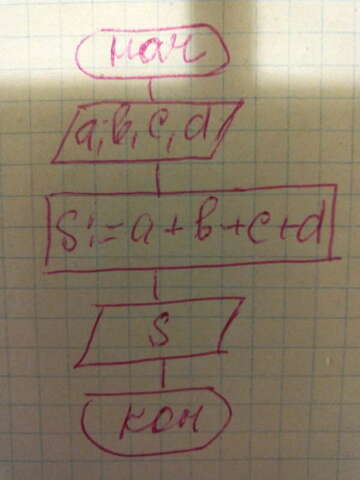 нач
a, b, c, d
S := a + b + c + d
S
кон